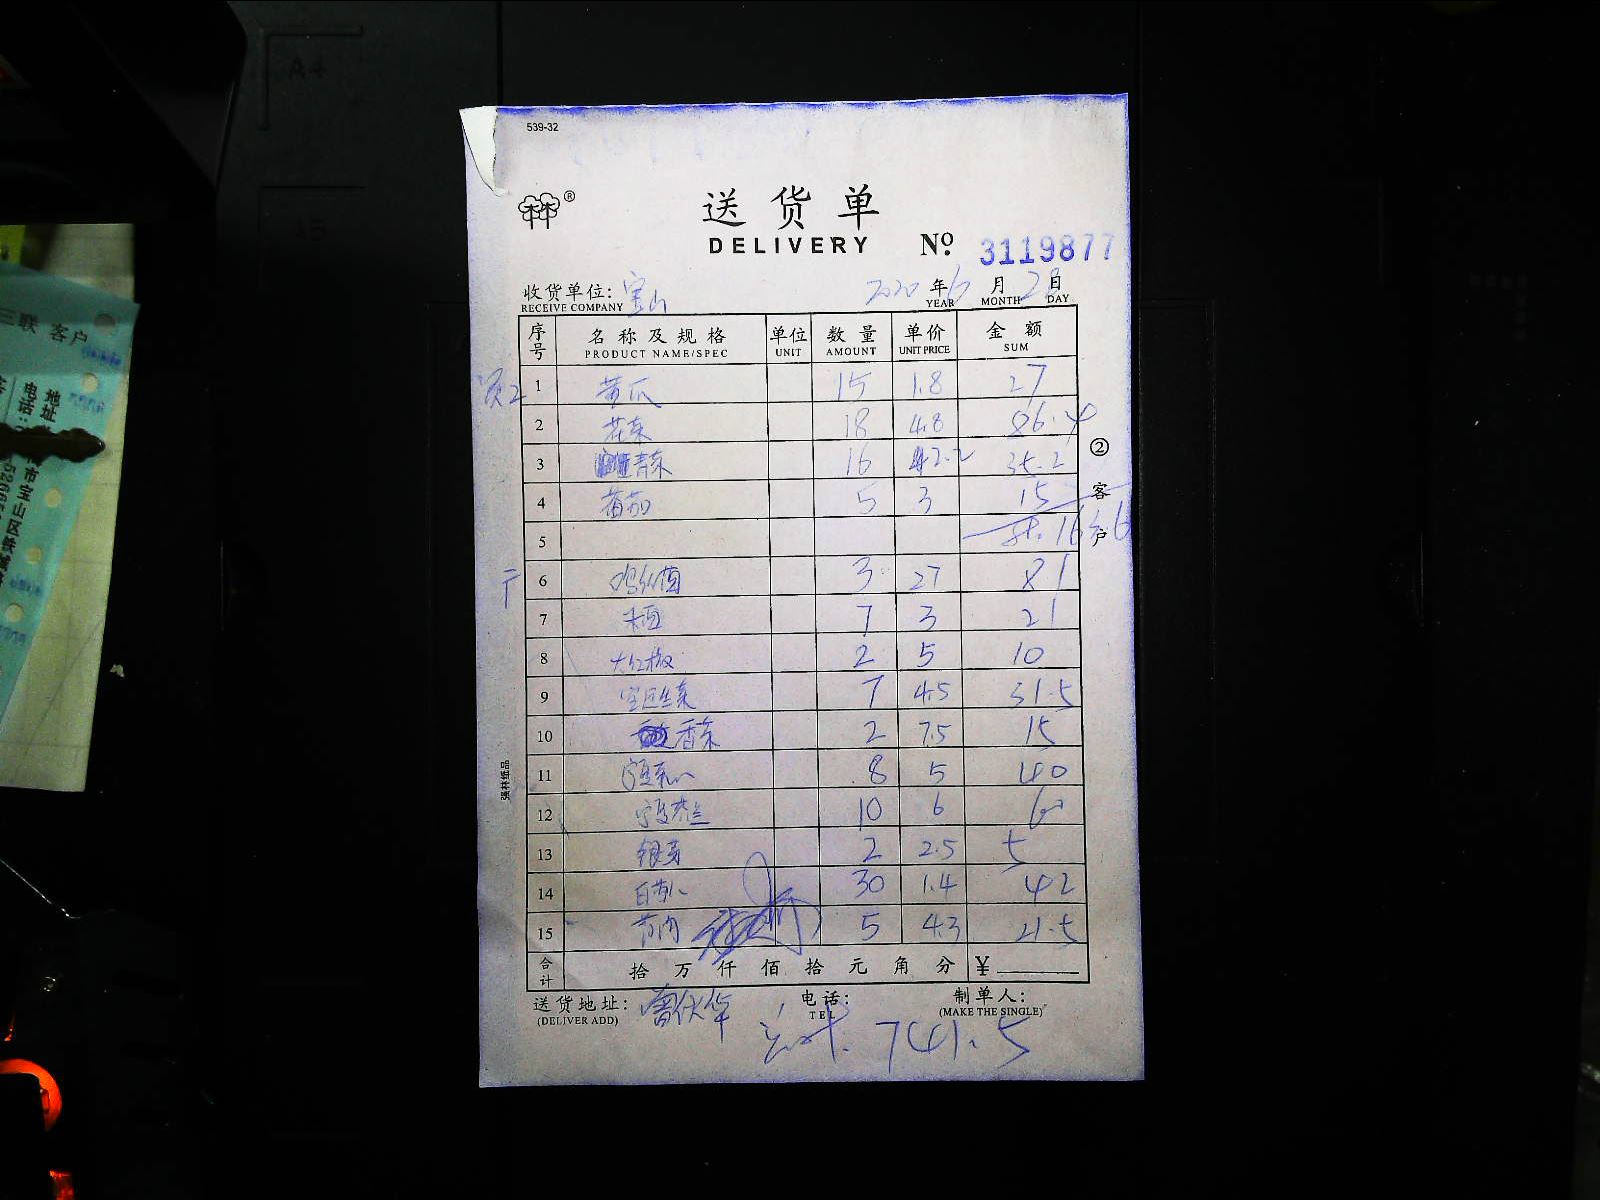 539-32
®
送货单
DELIVERY No. 3119877
收货单位: 宝山 2020年6月28日
RECEIVE COMPANY YEAR MONTH DAY
序号 名称及规格 单位 数量 单价 金额
PRODUCT NAME/SPEC UNIT AMOUNT UNIT PRICE SUM
1 黄瓜 15 1.8 27
2 花菜 18 4.8 86.4
3 青菜 16 2.2 35.2
4 番茄 5 3 15
5
6 3 27 81
7 7 3 21
8 大红椒 2 5 10
9 生菜 7 4.5 31.5
10 香菜 2 7.5 15
11 8 5 40
12 10 6 60
13 银芽 2 2.5 5
14 30 1.4 42
15 5 4.3 21.5
合计 拾 万 仟 佰 拾 元 角 分 ¥
送货地址: 电话: 制单人:
(DELIVER ADD) TEL (MAKE THE SINGLE)
741.5
② 客户
强林纸品
三联 客户
地址
电话:
市宝山区铁
A4
A5